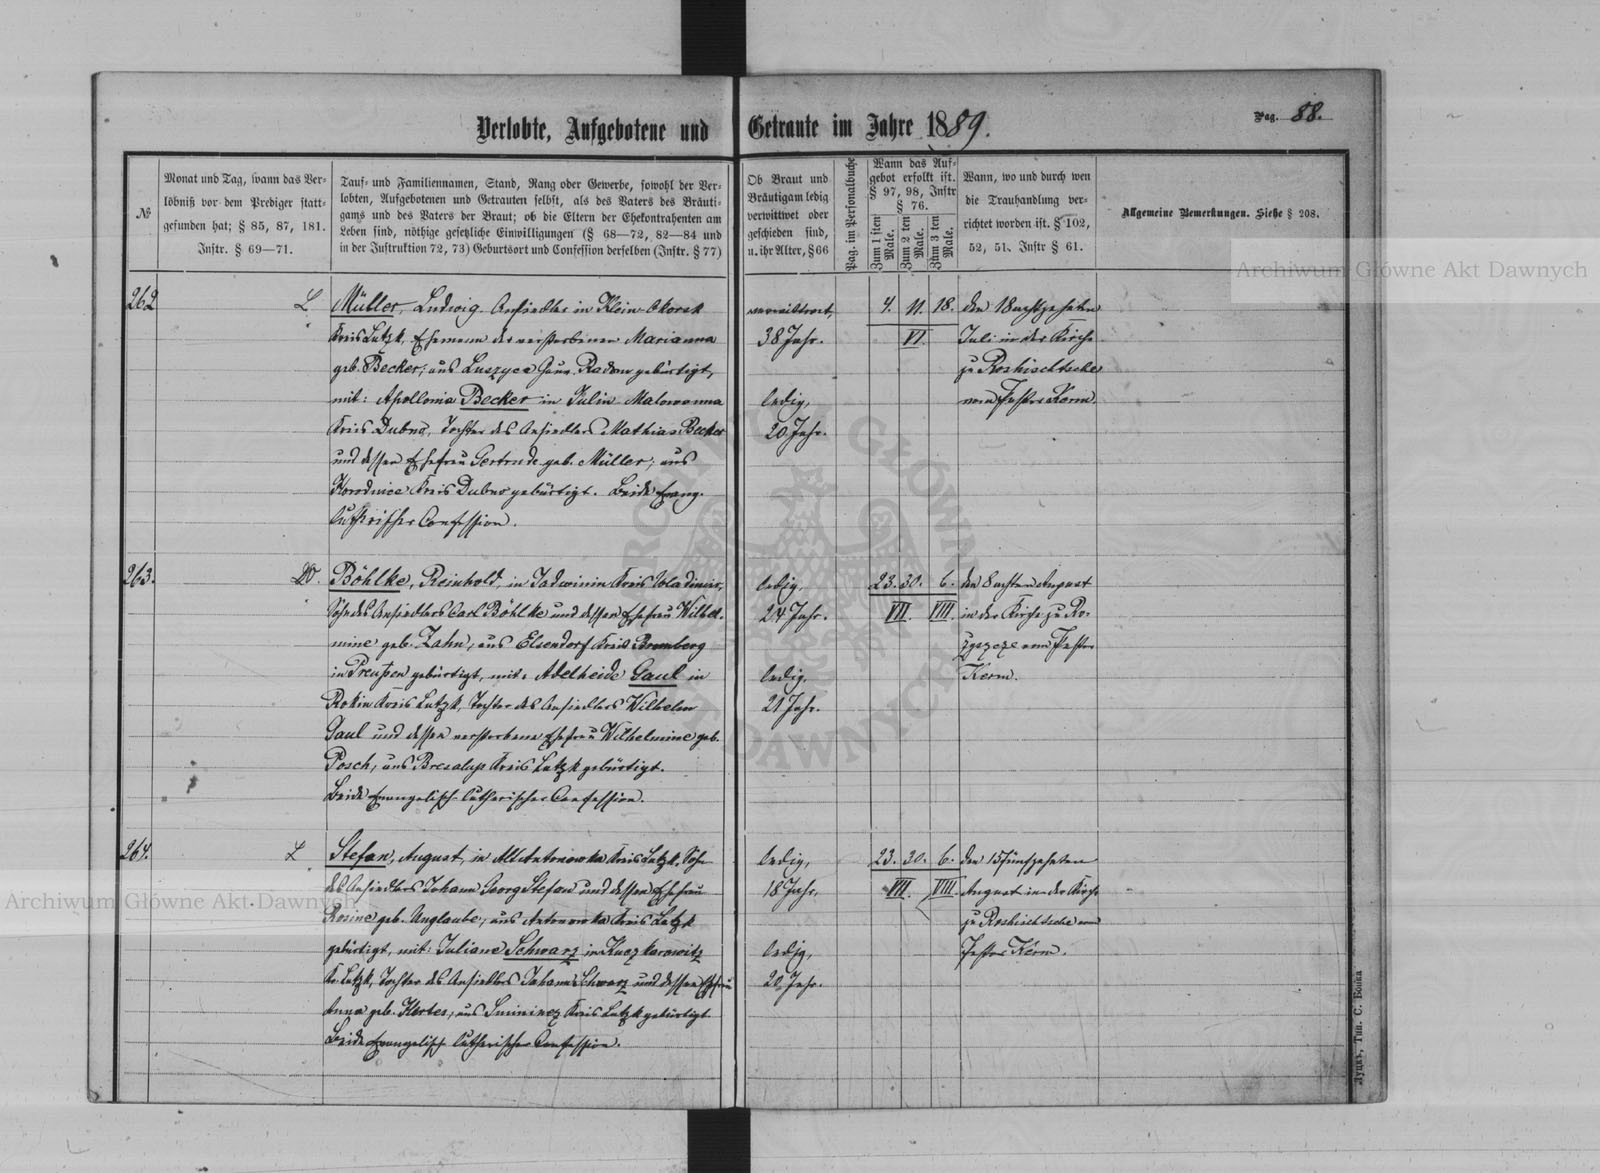 Verlobte, Aufgebotene und Getraute im Jahre 1889.
Pag. 88.
№
Monat und Tag, wann das Ver-
löbniß vor dem Prediger statt-
gefunden hat; § 85, 87, 181.
Instr. § 69—71.
Tauf- und Familiennamen, Stand, Rang oder Gewerbe, sowohl der Ver-
lobten, Aufgebotenen und Getrauten selbst, als des Vaters des Bräuti-
gams und des Vaters der Braut; ob die Eltern der Ehekontrahenten am
Leben sind, nöthige gesetzliche Einwilligungen (§ 68—72, 82—84 und
in der Instruktion 72, 73) Geburtsort und Confession derselben (Instr. § 77)
Ob Braut und
Bräutigam ledig
verwittwet oder
geschieden sind,
u. ihr Alter, § 66
Pag. im Personalbuche
Wann das Auf-
gebot erfolgt ist.
§ 97, 98, Instr
§ 76.
Zum 1 sten Male.
Zum 2 ten Male.
Zum 3 ten Male.
Wann, wo und durch wen
die Trauhandlung ver-
richtet worden ist. § 102,
52, 51. Instr § 61.
Allgemeine Bemerkungen. Siehe § 208.
262
L
Müller, Ludwig, Ansiedler in Klein-Okorsk
Kreis Lutzk, Ehemann der verstorbenen Marianna
geb. Becker; aus Luszyca Gouv. Radom gebürtigt,
mit: Apollonia Becker in Julin Malowanna
Kreis Dubno, Tochter des Ansiedlers Mathias Becker
und dessen Ehefrau Gertrude geb. Müller; aus
Kreis Dubno gebürtigt. Beide Evang.
lutherischer Confession.
verwittwet,
38 Jahr.
ledig,
20 Jahr.
4. 11. 18.
VI.
den 18 achtzehnten
Juli in der Kirche
zu Roshischtsche
vom Pastor Kerm.
263.
W.
Böhlke, Reinhold, in Jadwinin Kreis Wladimir,
Sohn des Ansiedlers Carl Böhlke und dessen Ehefrau Wilhel-
mine geb. Zahn, aus Elsendorf Kreis Bromberg
in Preußen gebürtigt, mit: Adelheide Gaul in
Rokin Kreis Lutzk, Tochter des Ansiedlers Wilhelm
Gaul und dessen verstorbene Ehefrau Wilhelmine geb.
Posch, aus Kreis Lutzk gebürtigt.
Beide Evangelisch-lutherischer Confession.
ledig,
24 Jahr.
ledig.
21 Jahr.
23. 30. 6.
VII. VIII.
den 8 achten August
in der Kirche zu Ro-
zyszcze vom Pastor
Kerm.
264.
L
Stefan, August, in Alt Antonowka Kreis Lutzk, Sohn
des Ansiedlers Johann Georg Stefan und dessen Ehefrau
Rosine geb. Unglaube, aus Antonowka Kreis Lutzk
gebürtigt, mit: Juliane Schwarz in Kuczkarowitz
Kr. Lutzk, Tochter des Ansiedlers Johann Schwarz und dessen Ehefrau
Anna geb. aus Kreis Lutzk gebürtigt.
Beide Evangelisch-lutherischer Confession.
ledig,
18 Jahr.
ledig,
20 Jahr.
23. 30. 6.
VII. VIII
den 15 fünfzehnten
August in der Kirche
zu Roshischtsche vom
Pastor Kerm.
Луцкъ, Тип. С. Бойка
Archiwum Główne Akt Dawnych
Archiwum Główne Akt Dawnych
ARCHIWUM GŁÓWNE AKT DAWNYCH